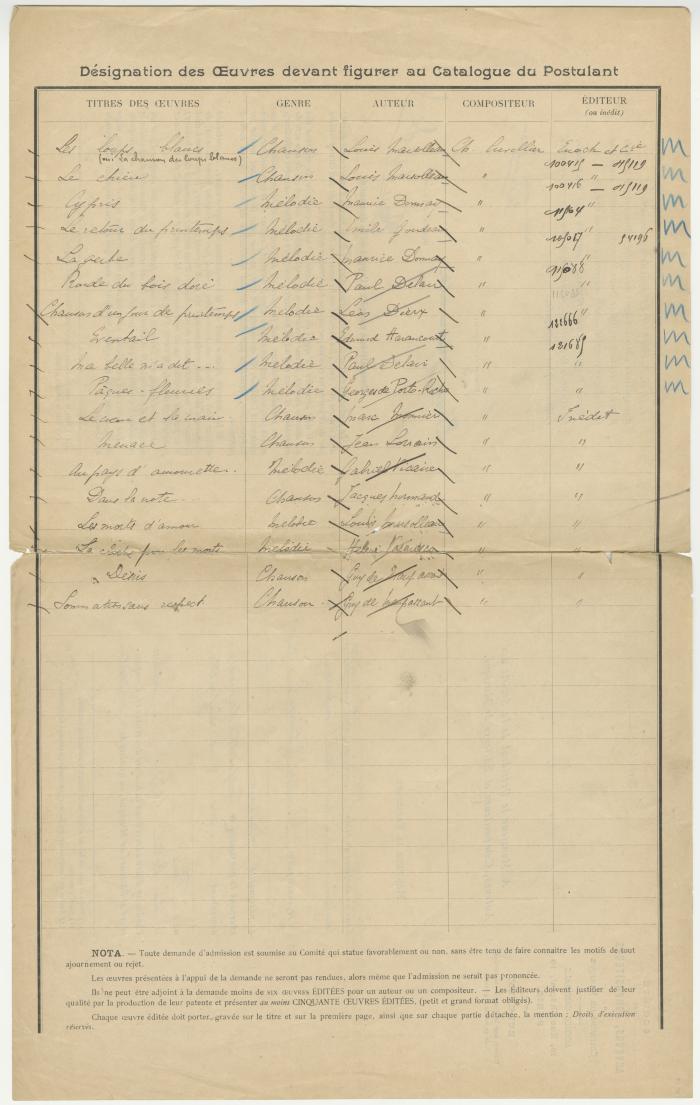 Désignation des Œuvres devant figurer au Catalogue du Postulant
TITRES DES ŒUVRES GENRE AUTEUR COMPOSITEUR ÉDITEUR
(ou inédit)
Les loups blancs Chanson Louis Marsolleau Ch. Cuvillier Enoch et Cie M
(ou: La chanson des loups blancs) 100415 — 015119
Le chien Chanson Louis Marsolleau " " M
100416 — 015119
Cypris Mélodie Maurice Donnay " " M
Le retour du printemps Mélodie Emile Goudeau " " M
Mélodie Maurice Donnay " " M
Ronde du bois doré Mélodie Paul Delair " " M
Chanson d'un jour de printemps Mélodie Léon Dierx " " M
121666
Eventail Mélodie Edmond Haraucourt " " M
Ma belle m'a dit ... Mélodie Paul Delair " " M
Pâques-fleuries Mélodie Georges de Porto-Riche " " M
Chanson Marc Monnier " Inédit
Menace Chanson Jean Lorrain " "
Au pays d'amourette.. Mélodie Gabriel Vicaire " "
Dans la note... Chanson Jacques Normand " "
Les morts d'amour Mélodie Louis Marsolleau " "
La pour les morts Mélodie " "
Denis Chanson Guy de Maupassant " "
Sommation sans respect Chanson Guy de Maupassant " "
NOTA. — Toute demande d'admission est soumise au Comité qui statue favorablement ou non, sans être tenu de faire connaître les motifs de tout
ajournement ou rejet.
Les œuvres présentées à l'appui de la demande ne seront pas rendues, alors même que l'admission ne serait pas prononcée.
Il ne peut être adjoint à la demande moins de SIX ŒUVRES ÉDITÉES pour un auteur ou un compositeur. — Les Éditeurs doivent justifier de leur
qualité par la production de leur patente et présenter au moins CINQUANTE ŒUVRES ÉDITÉES, (petit et grand format obligés).
Chaque œuvre éditée doit porter, gravée sur le titre et sur la première page, ainsi que sur chaque partie détachée, la mention : Droits d'exécution
réservés.